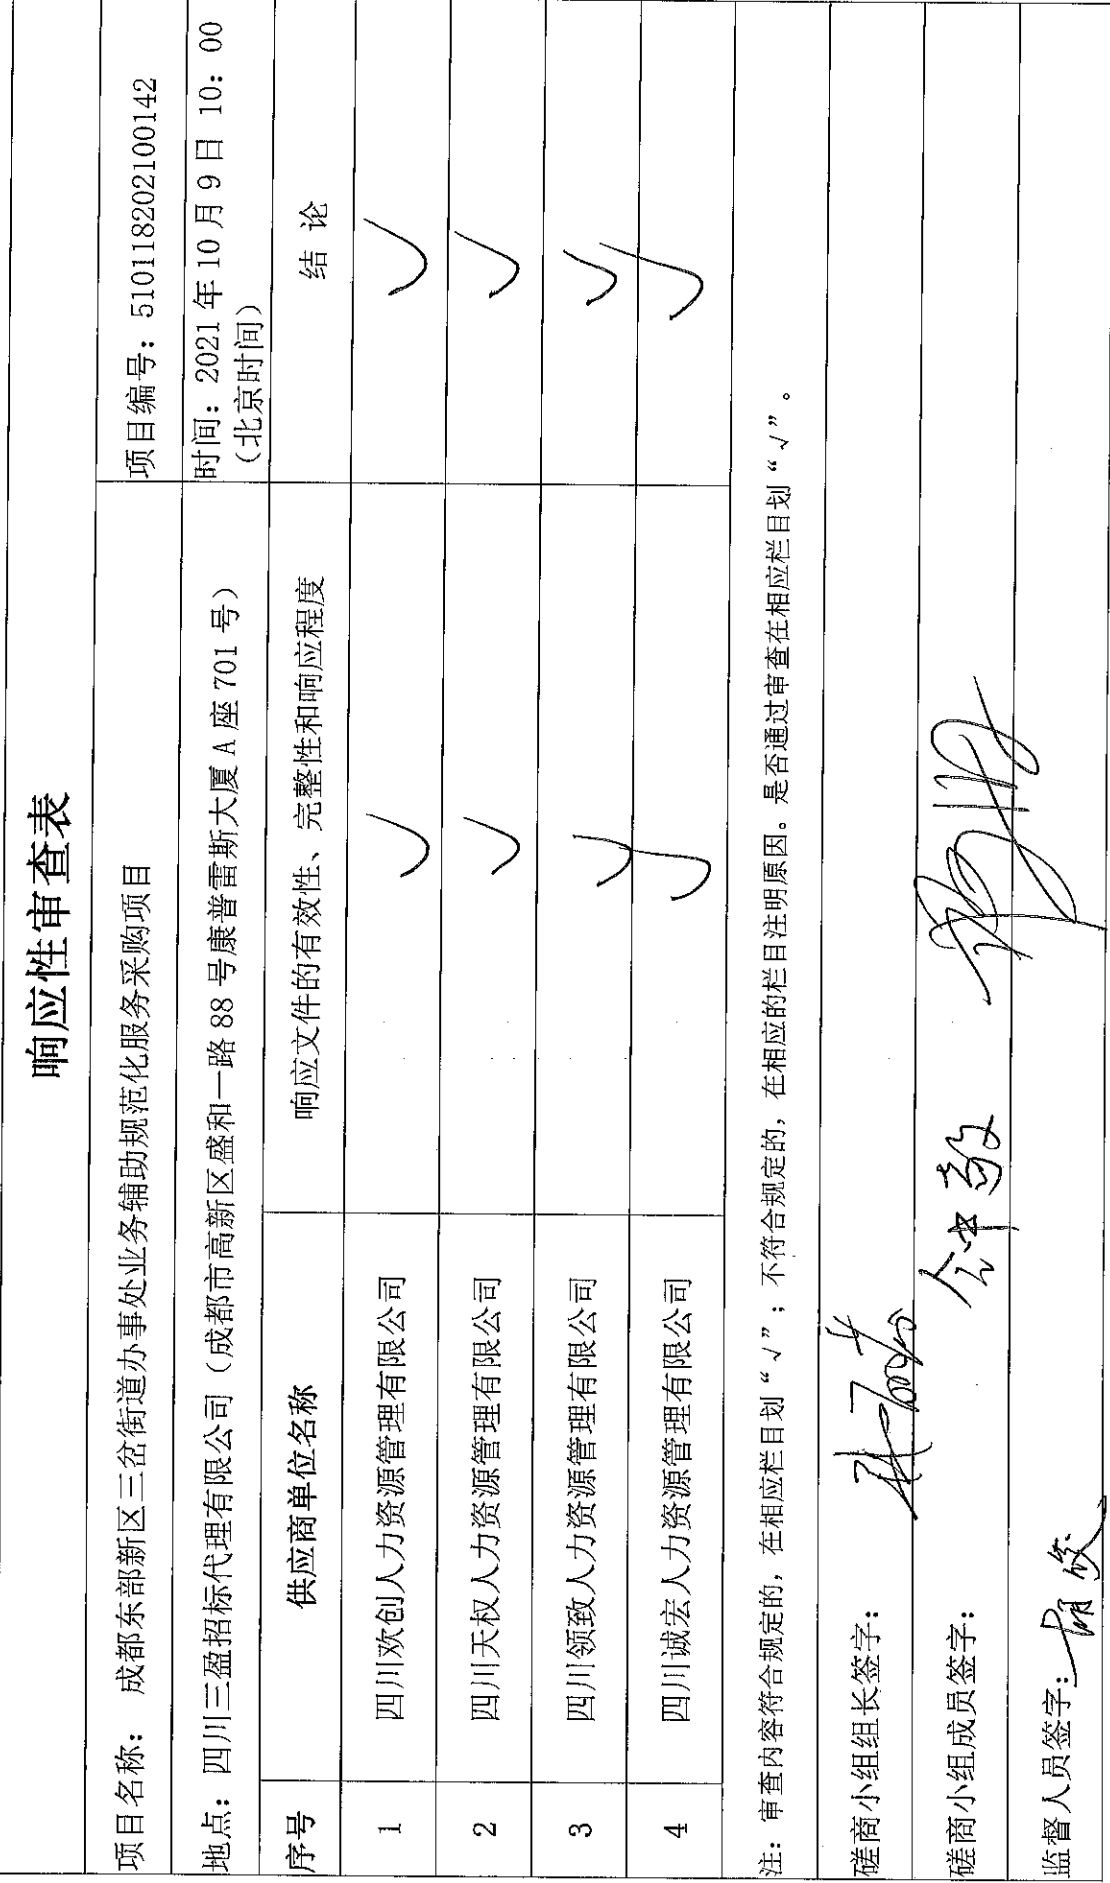 响应性审查表
项目名称： 成都东部新区三岔街道办事处业务辅助规范化服务采购项目 项目编号：510118202100142
地点：四川三盈招标代理有限公司（成都市高新区盛和一路 88 号康普雷斯大厦 A 座 701 号） 时间：2021 年 10 月 9 日 10：00
（北京时间）
序号 供应商单位名称 响应文件的有效性、完整性和响应程度 结 论
1 四川欢创人力资源管理有限公司 √ √
2 四川天权人力资源管理有限公司 √ √
3 四川领致人力资源管理有限公司 √ √
4 四川诚宏人力资源管理有限公司 √ √
注：审查内容符合规定的，在相应栏目划“√”；不符合规定的，在相应的栏目注明原因。是否通过审查在相应栏目划“√”。
磋商小组组长签字：
磋商小组成员签字：
监督人员签字：